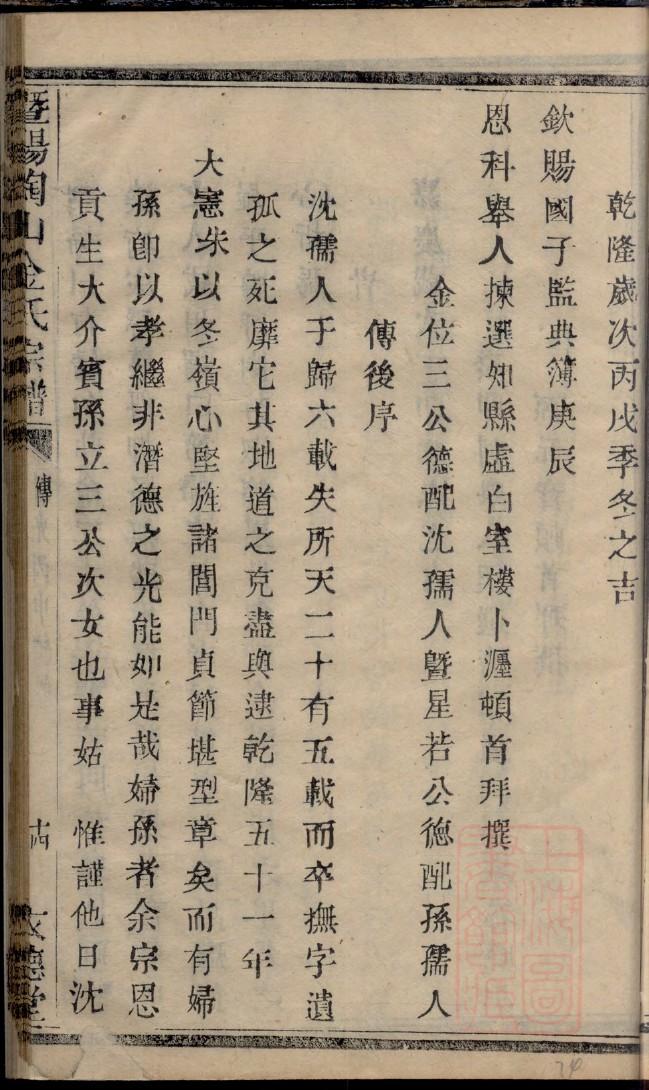 乾隆歲次丙戌季冬之吉
欽賜國子監典簿庚辰
恩科舉人揀選知縣虛白室樓卜瀍頓首拜撰
金位三公德配沈孺人暨星若公德配孫孺人
傳後序
沈孺人于歸六載失所天二十有五載而卒撫字遺
孤之死靡它其地道之克盡與逮乾隆五十一年
大憲朱以冬嶺心堅旌諸閭門貞節堪型章矣而有婦
孫卽以孝繼非潛德之光能如是哉婦孫者余宗恩
貢生大介賓孫立三公次女也事姑 惟謹他日沈
暨陽陶山金氏宗譜
傳
文德堂
上海圖
書館
74